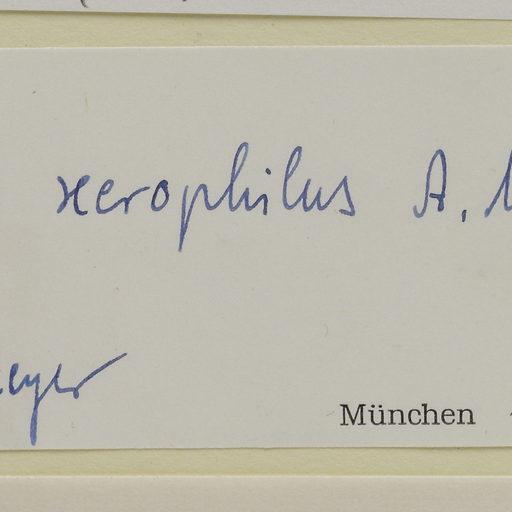 xerophilus A.
eyer
München